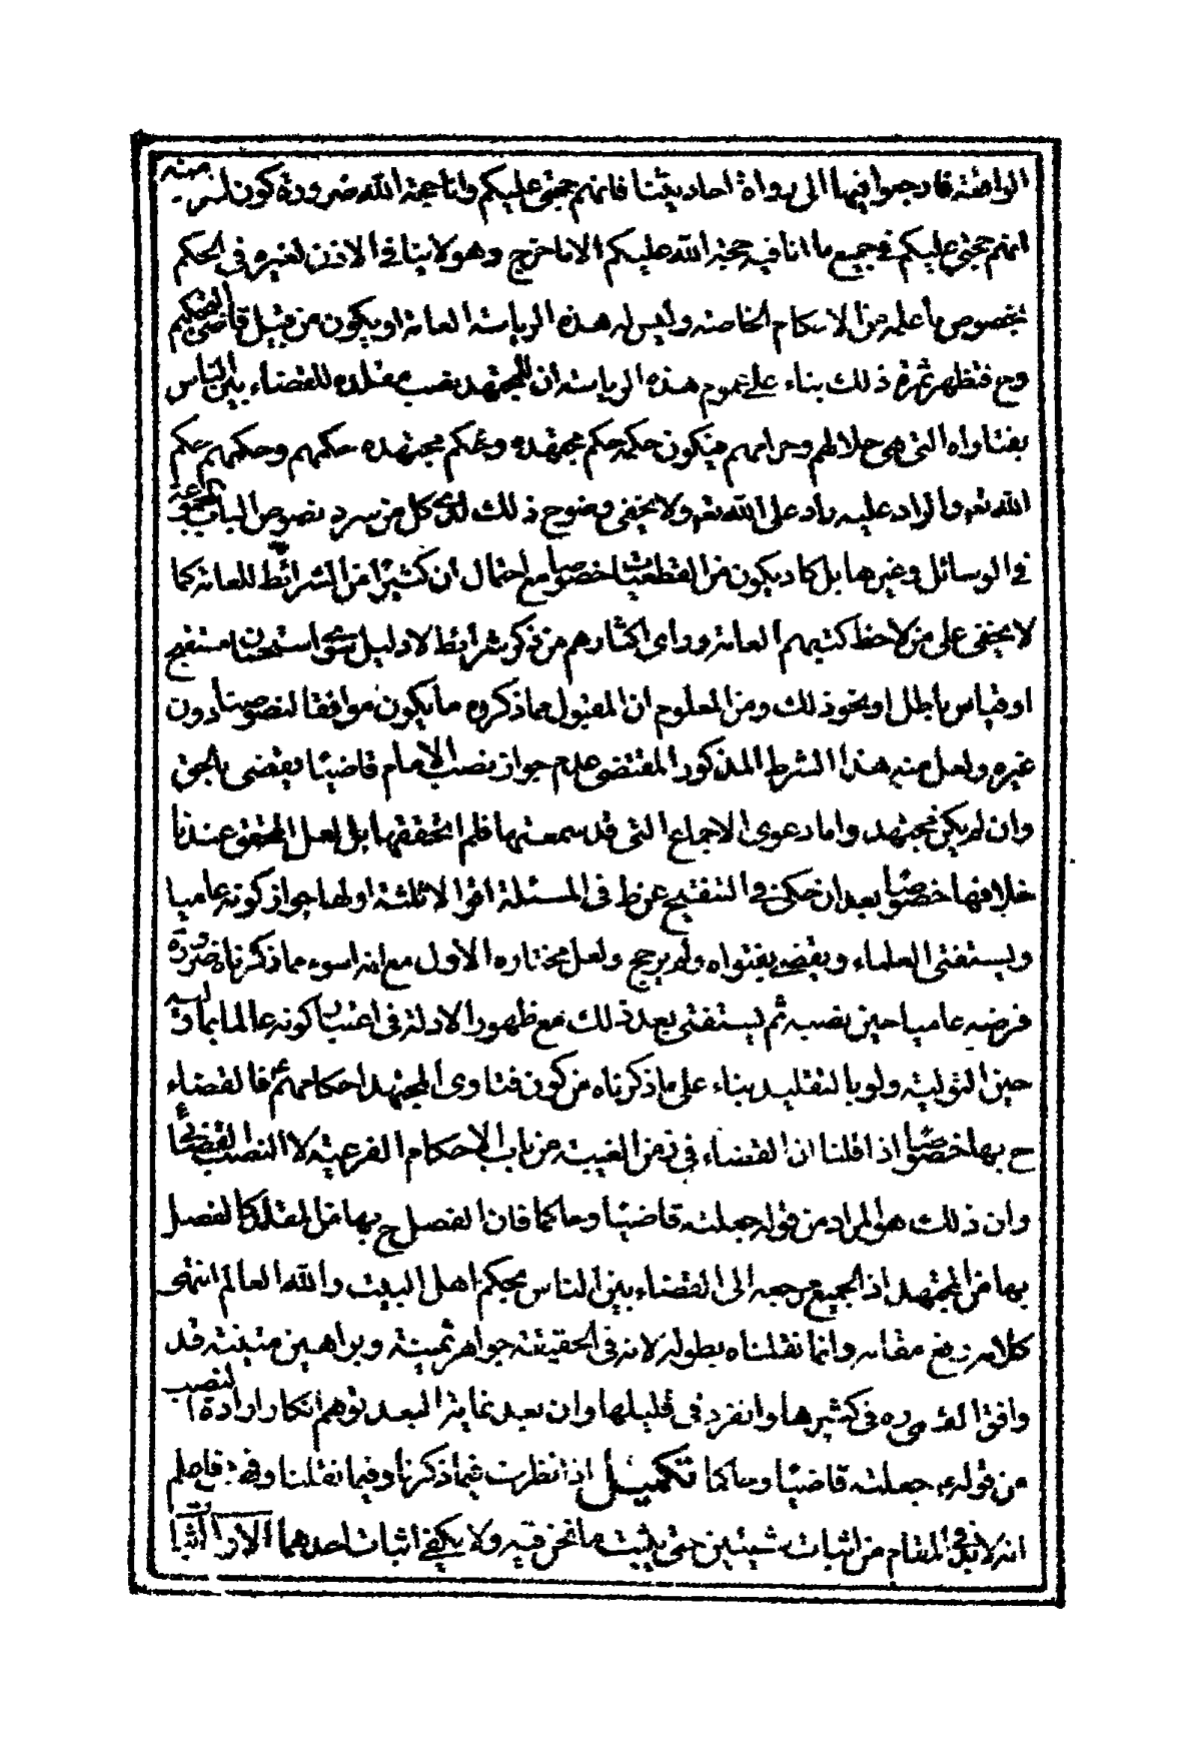 الواقعة فارجعوا فيها الى رواة احاديثنا فانهم حجتى عليكم وانا حجة الله ضرورة كون المراد منه
انهم حجتى عليكم فى جميع ما انا فيه حجة الله عليكم الا ما خرج وهو لا ينافى الاذن لغيره فى الحكم
بخصوص ما علمه من الاحكام الخاصة وليس له هذه الرياسة العامة او يكون من قبيل قاضى التحكيم
وح فتظهر ثمرة ذلك بناء على عموم هذه الرياسة ان للمجتهد نصب مقلده للقضاء بين الناس
بفتاواه التى هى حلالهم وحرامهم فيكون حكمه حكم مجتهده وحكم مجتهده حكمهم وحكمهم حكم
الله تعم والراد عليه راد على الله تعم ولا يخفى وضوح ذلك لدى كل من سرد نصوص الباب المجموعة
فى الوسائل وغيرها بل كاد يكون من القطعيات خصوصا مع احتمال ان كثيرا من الشرائط للعامة كما
لا يخفى على من لاحظ كتبهم العامة وراى اكثارهم من ذكر شرائط لا دليل لها سوى استحسان مستقبح
او قياس باطل او نحو ذلك ومن المعلوم ان المقبول مما ذكروه ما يكون موافقا لنصوصنا دون
غيره ولعل منه هذا الشرط المذكور المقتضى عدم جواز نصب الامام قاضيا يقضى بالحق
وان لم يكن مجتهد واما دعوى الاجماع التى قد سمعتها فلم نتحققها بل لعل المحقق عندنا
خلافها خصوصا بعد ان حكى فى التنقيح عن ط فى المسئلة اقوالا ثلثة اولها جواز كونه عاميا
ويستفتى العلماء ويقضى بفتواه ولم يرجح ولعل مختاره الاول مع انه اسوء مما ذكرناه ضرورة
فرضه عاميا حين نصبه ثم يستفتى بعد ذلك مع ظهور الادلة فى اعتبار كونه عالما بما وليه
حين التولية ولو بالتقليد بناء على ما ذكرناه من كون فتاوى المجتهد احكامهم ع فالقضاء
ح بها خصوصا اذا قلنا ان القضاء فى زمن الغيبة من باب الاحكام الشرعية لا النصب القضائى
وان ذلك هو المراد من قوله جعلته قاضيا وحاكما فان الفصل ح بها من المقلد كالفصل
بها من المجتهد اذ الجميع مرجعه الى القضاء بين الناس بحكم اهل البيت والله العالم انتهى
كلامه رفع مقامه وانما نقلناه بطوله لانه فى الحقيقة جواهر ثمينة وبراهين متينة قد
وافق القوم ره فى كثيرها وانفرد فى قليلها وان بعد غاية البعد توهم انكار ارادة النصب
من قوله ع جعلته قاضيا وحاكما تكميل اذا نظرت فيما ذكرنا وفيما نقلنا فاعلم
انه لا بد فى المقام من اثبات شيئين حتى يثبت ما نحن فيه ولا يكفى اثبات احدهما الاول اثبات